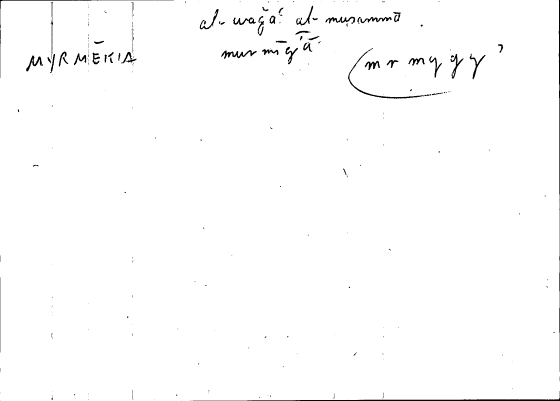 al-waǧaʿ al-musammā
MYRMĒKIA murmīǧīā
m r m y g y ʾ